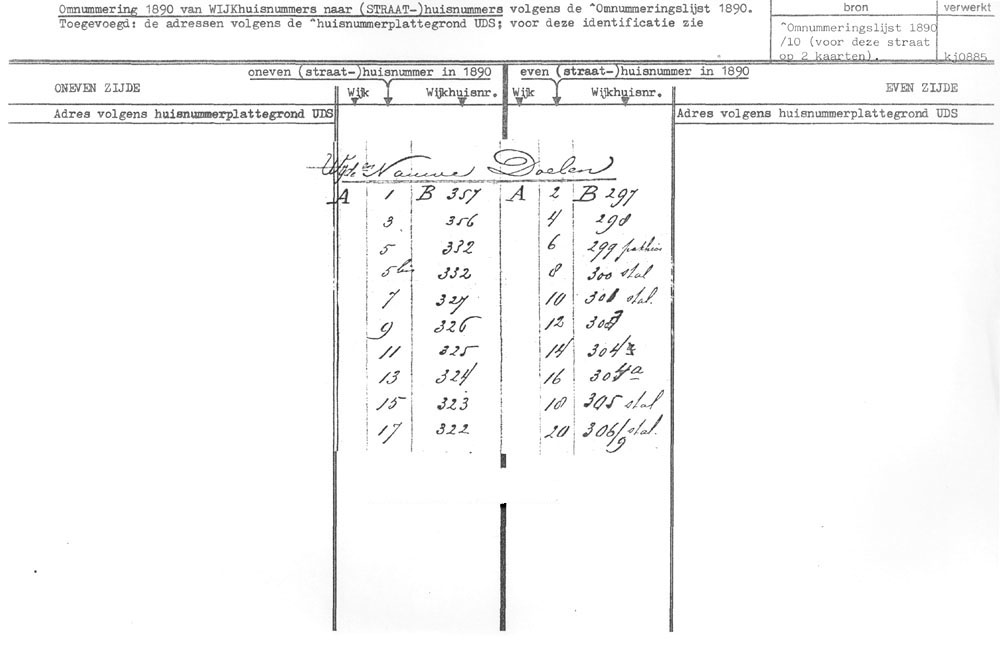 Omnummering 1890 van WIJKhuisnummers naar (STRAAT-)huisnummers volgens de ^Omnummeringslijst 1890.
Toegevoegd: de adressen volgens de ^huisnummerplattegrond UDS; voor deze identificatie zie
bron
verwerkt
^Omnummeringslijst 1890
/10 (voor deze straat
op 2 kaarten).
kj0885
oneven (straat-)huisnummer in 1890
even (straat-)huisnummer in 1890
ONEVEN ZIJDE
Wijk Wijkhuisnr. Wijk Wijkhuisnr.
EVEN ZIJDE
Adres volgens huisnummerplattegrond UDS
Adres volgens huisnummerplattegrond UDS
Nauwe Doelen
A 1 B 357 A 2 B 297
3 356 4 298
5 332 6 299
5 bis 332 8 300 stal
7 327 10 301 stal.
9 326 12
11 325 14 304
13 324 16
15 323 18 305 stal
17 322 20 306/9 stal.